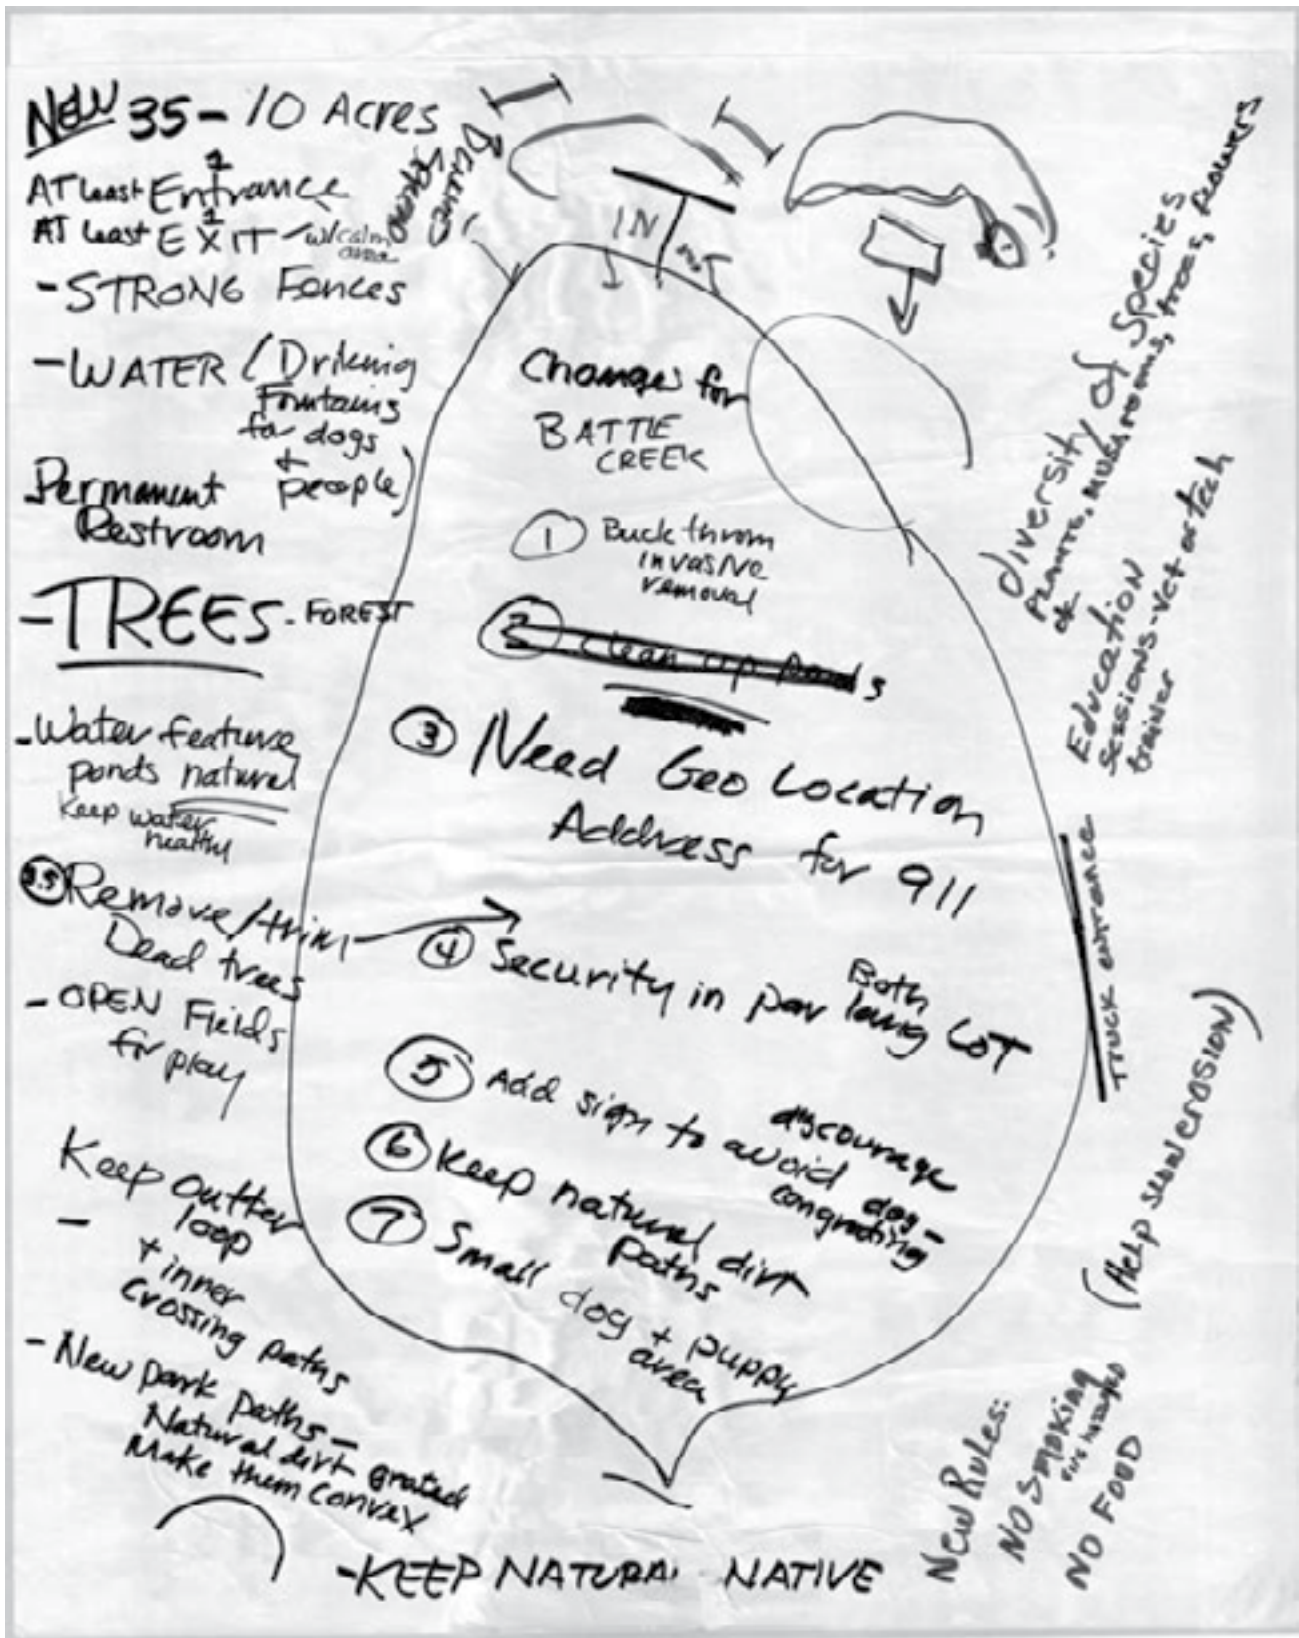 NEW 35 - 10 Acres
AT least 1 Entrance
AT least 1 EXIT - w/calm
area
- STRONG Fences
- WATER (Drinking
Fountains
for dogs
+
people)
- Permanent
Restroom
- TREES - FOREST
- Water feature
ponds natural
Keep water
healthy
3.5 Remove/trim
Dead trees
- OPEN Fields
for play
Keep outter
loop
- + inner
Crossing paths
- New park paths -
Natural dirt grated
Make them convex
- KEEP NATURAL NATIVE
Double
Fenced
IN
out
Changes for
BATTLE
CREEK
1 Buckthrom
invasive
removal
2 clean up ponds
3 Need Geo Location
Address for 911
4 Security in
Both
LOT
5 Add sign to avoid
discourage
dog-
congrating
6 Keep natural dirt
paths
7 Small dog + puppy
area
diversity of species
plants, mushrooms, trees, flowers
Education
Sessions - Vet or tech
trainer
TRUCK entrance
(Help slow erosion)
New Rules:
NO SMOKING
fire hazard
NO FOOD